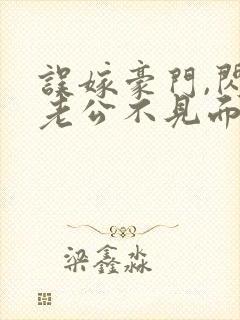 誤嫁豪門,閃
老公不見而
梁鑫淼